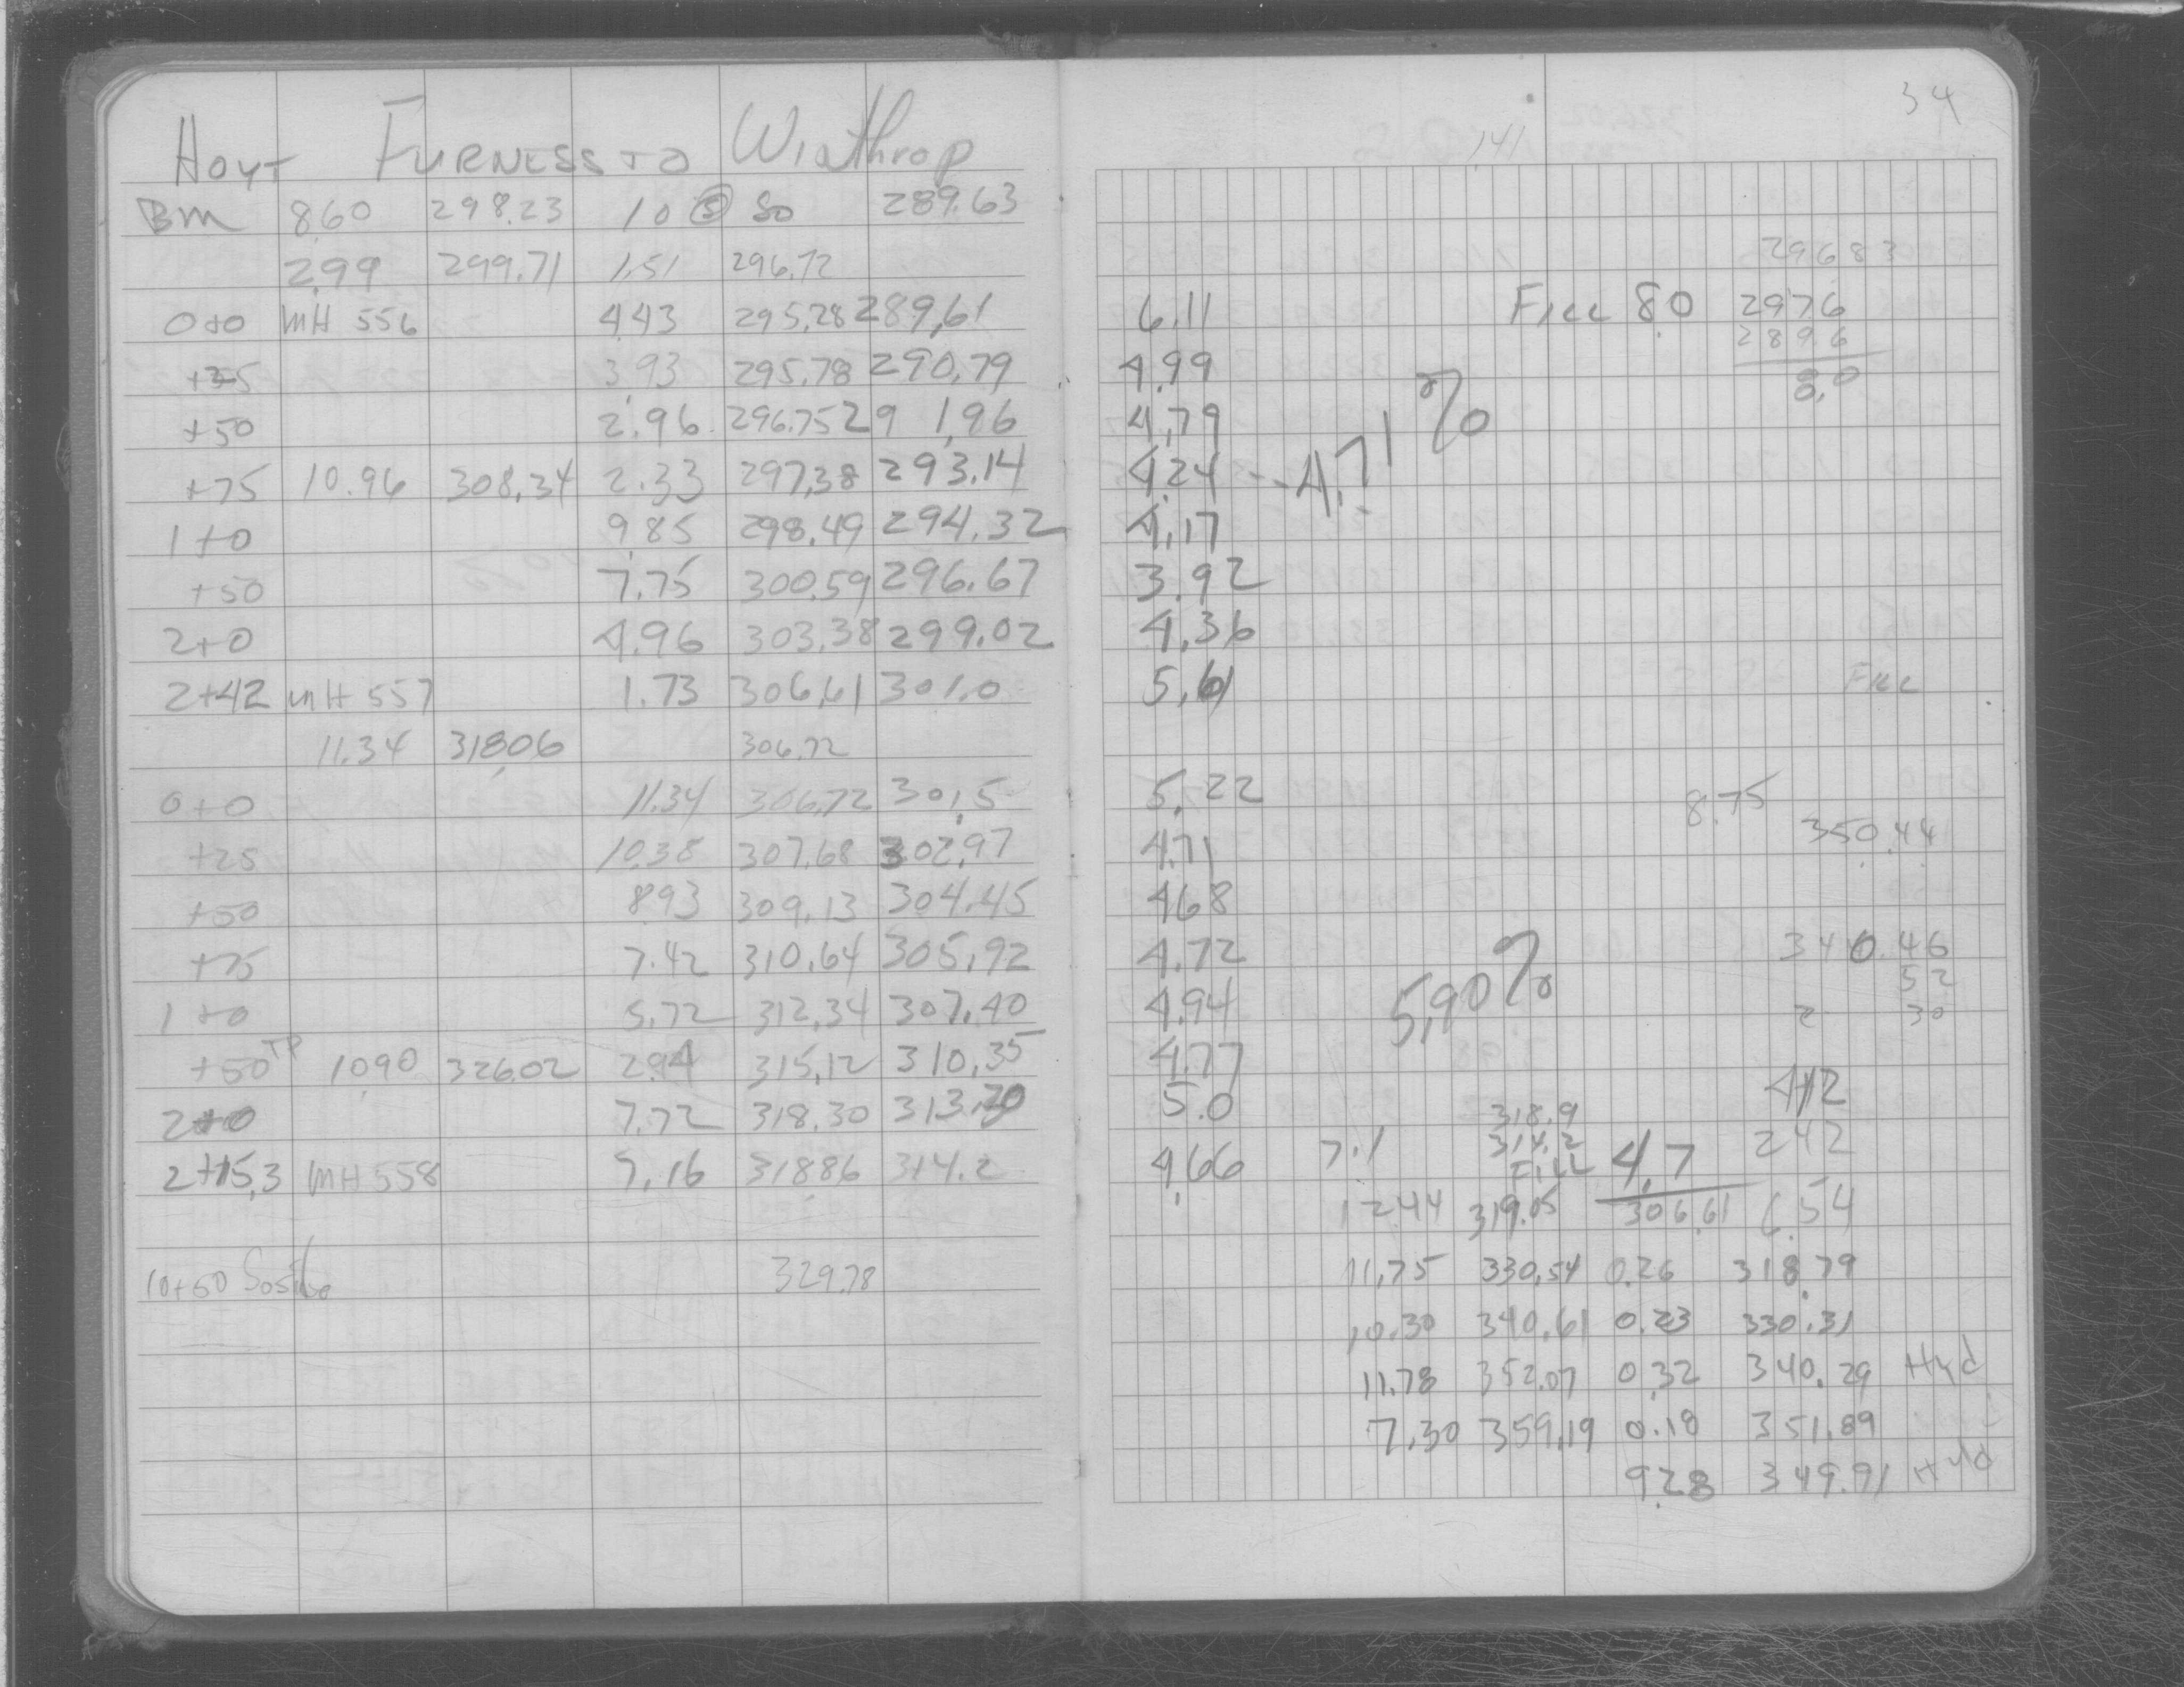 34
141
Hoyt Furness to Winthrop
BM 8.60 298.23 10 @ So 289.63
2.99 299.71 1.51 296.72
0+0 MH 556 4.43 295.28 289.61 6.11 Fill 8.0
29683
2976
2896
8.0
+25 3.93 295.78 290.79 4.99
+50 2.96 296.75 291.96 4.79
+75 10.96 308.34 2.33 297.38 293.14 4.24 -- 4.71%
1+0 9.85 298.49 294.32 4.17
+50 7.75 300.59 296.67 3.92
2+0 4.96 303.38 299.02 4.36
2+42 MH 557 1.73 306.61 301.0 5.61 Fill
11.34 318.06 306.72
0+0 11.34 306.72 301.5 5.22 8.75
350.44
+25 10.38 307.68 302.97 4.71
+50 8.93 309.13 304.45 4.68
+75 7.42 310.64 305.92 4.72 340.46
52
1+0 5.72 312.34 307.40 4.94 5.90% 2 30
+50 TP 10.90 326.02 2.94 315.12 310.35 4.77 412
2+0 7.72 318.30 313.30 5.0 318.9 242
2+15.3 MH 558 7.16 318.86 314.2 4.66 7.1 314.2
Fill 4.7
12.44 319.05 306.61 6.54
10+50 329.78 11.75 330.54 0.26 318.79
10.30 340.61 0.23 330.31
11.78 352.07 0.32 340.29 Hyd
7.30 359.19 0.18 351.89
9.28 349.91 Hyd